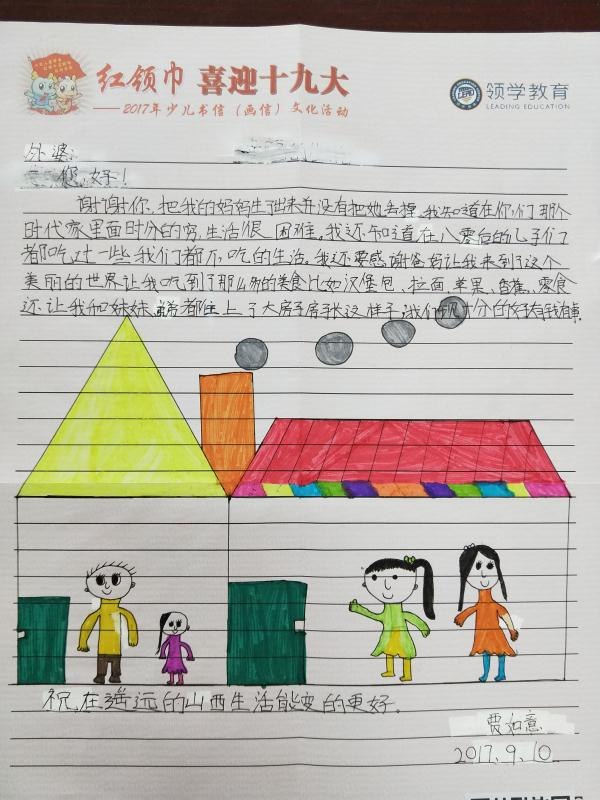 红领巾 喜迎十九大
——2017年少儿书信(画信)文化活动
领学教育
LEADING EDUCATION
外婆:
您,好!
谢谢你,把我的妈妈生出来并没有把她丢掉。我知道在你们那个
时代家里面时分的穷,生活很 困难。我还知道在八零后的儿子们
都吃过一些我们都不吃的生活。我还要感谢爸妈让我来到了这个
美丽的世界让我吃到了那么多的美食比如汉堡包、拉面、苹果、香蕉、零食
还让我和妹妹、弟弟都住上了大房子房子长这样子。我们
祝,在遥远的山西生活能变的更好。
贾如意
2017.9.10